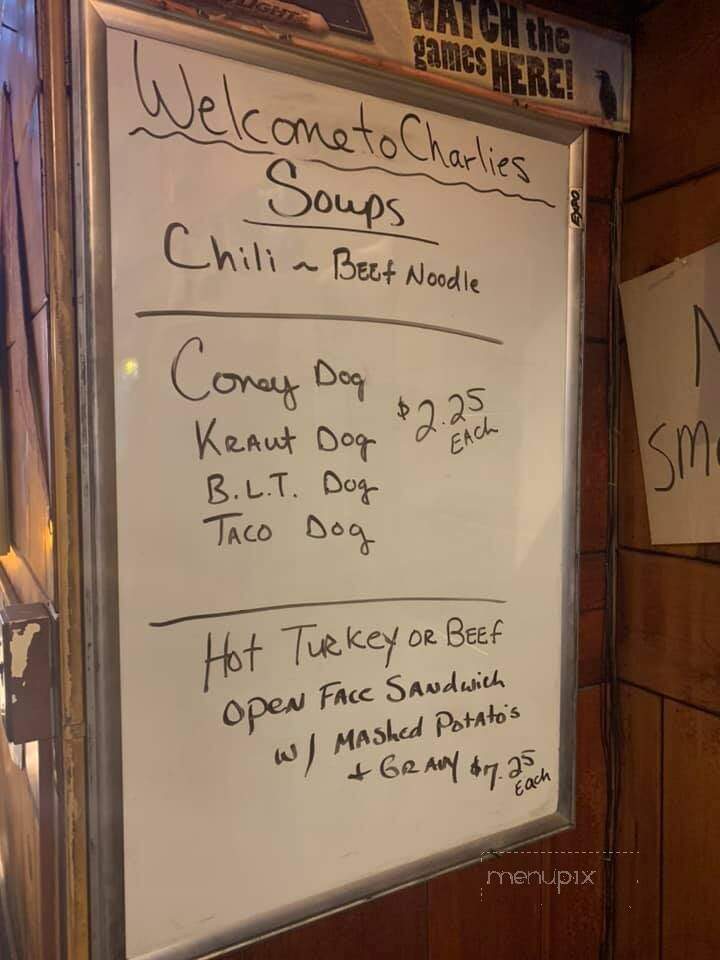 LIGHT
WATCH the
games HERE!
Welcome to Charlies
Soups
EXPO
Chili ~ BEEf Noodle
Coney Dog
$2.25
EACh
KRAut Dog
B.L.T. Dog
TACO Dog
Hot TuRkey OR BEEf
OpeN FAce SANdwich
w/ MAShed PotAto's
+ GRAVY $7.25
Each
menupix